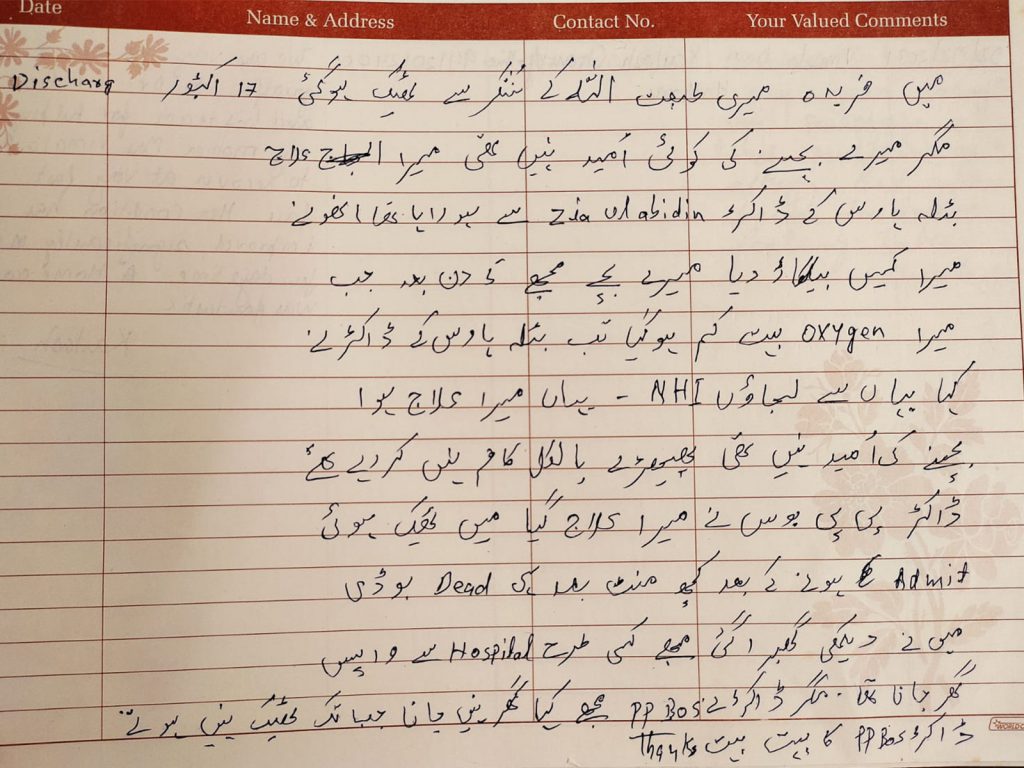 Date Name & Address Contact No. Your Valued Comments
میں فریدہ میری طبیعت اللہ کے شکر سے ٹھیک ہوگئی 17 اکتوبر Discharg
مگر میرے بچنے کی کوئی اُمید نہیں تھی میرا علاج
بٹلہ ہاوس کے ڈاکٹر Zia Ul abidin سے ہو رہا تھا انھونے
میرا کیس بیگاڑ دیا میرے بچے مجھے کے دن بعد جب
میرا OXYgen بہت کم ہوگیا تب بٹلہ ہاوس کے ڈاکٹر نے
کہا یہاں سے لیجاؤں NHI - یہاں میرا علاج ہوا
بچنے کی اُمید نہیں تھی پھیپھڑے بالکل کام نہیں کر رہے تھے
ڈاکٹر پی پی بوس نے میرا علاج کیا میں ٹھیک ہوئی
Admit ہونے کے بعد کچھ منٹ بعد ہی Dead بوڈی
میں نے دیکھی گھبرا گئی مجھے کسی طرح Hospital سے واپس
گھر جانا تھا۔ مگر ڈاکٹر PP Bos نے مجھے کہا گھر نہیں جانا جب تک ٹھیک نہیں ہوتے
ڈاکٹر PP Bos کا بہت بہت Thanks
WORLD